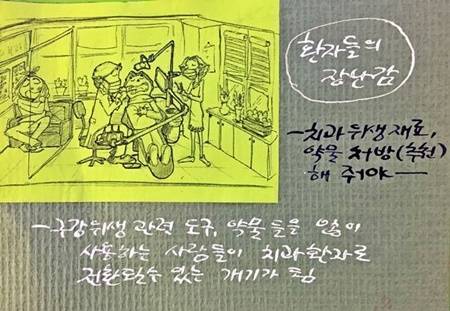 환자들의
장난감
—치과위생재료,
약물 처방(추천)
해 주어야—
—구강위생 관련 도구, 약물들을 많이
사용하는 사람들이 치과환자로
전환될수 있는 계기가 됨